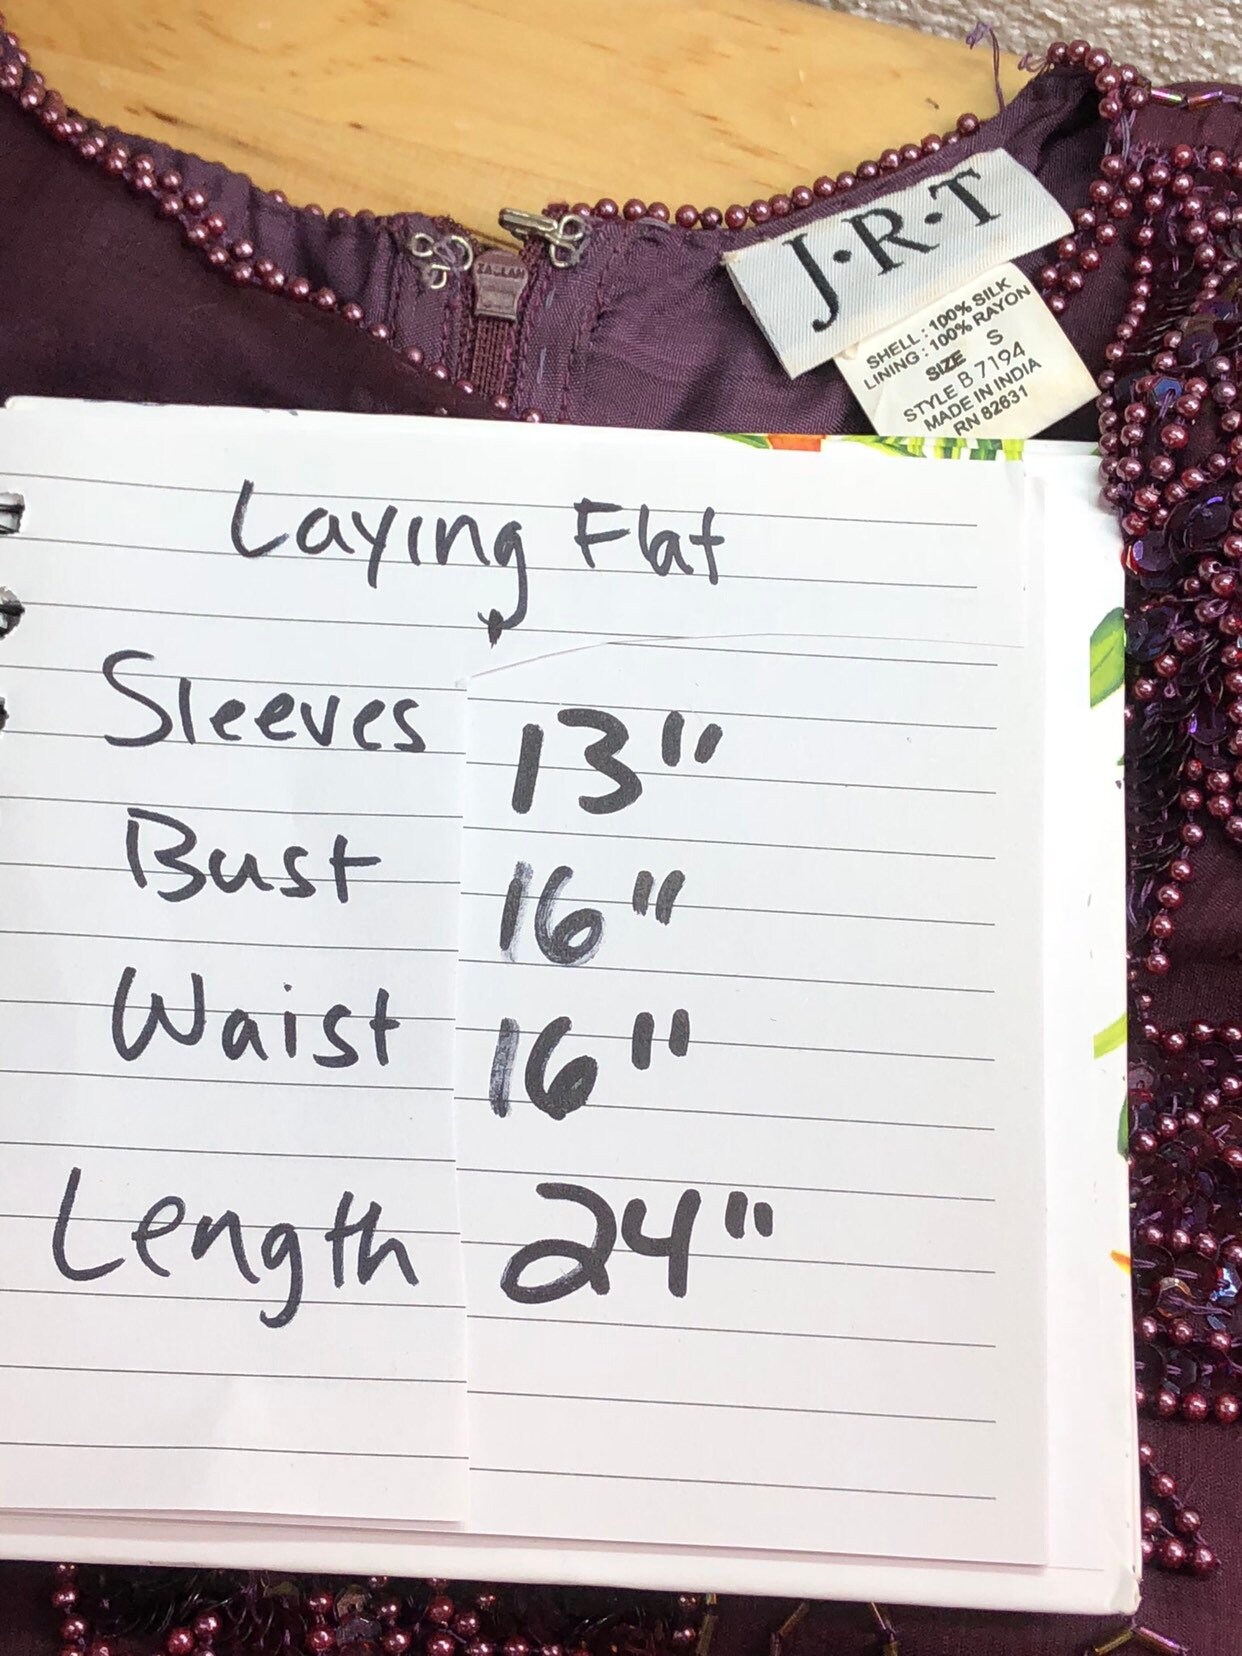 J·R·T
SHELL : 100% SILK
LINING : 100% RAYON
SIZE S
STYLE B 7194
MADE IN INDIA
RN 82631
Laying Flat
Sleeves 13"
Bust 16"
Waist 16"
Length 24"